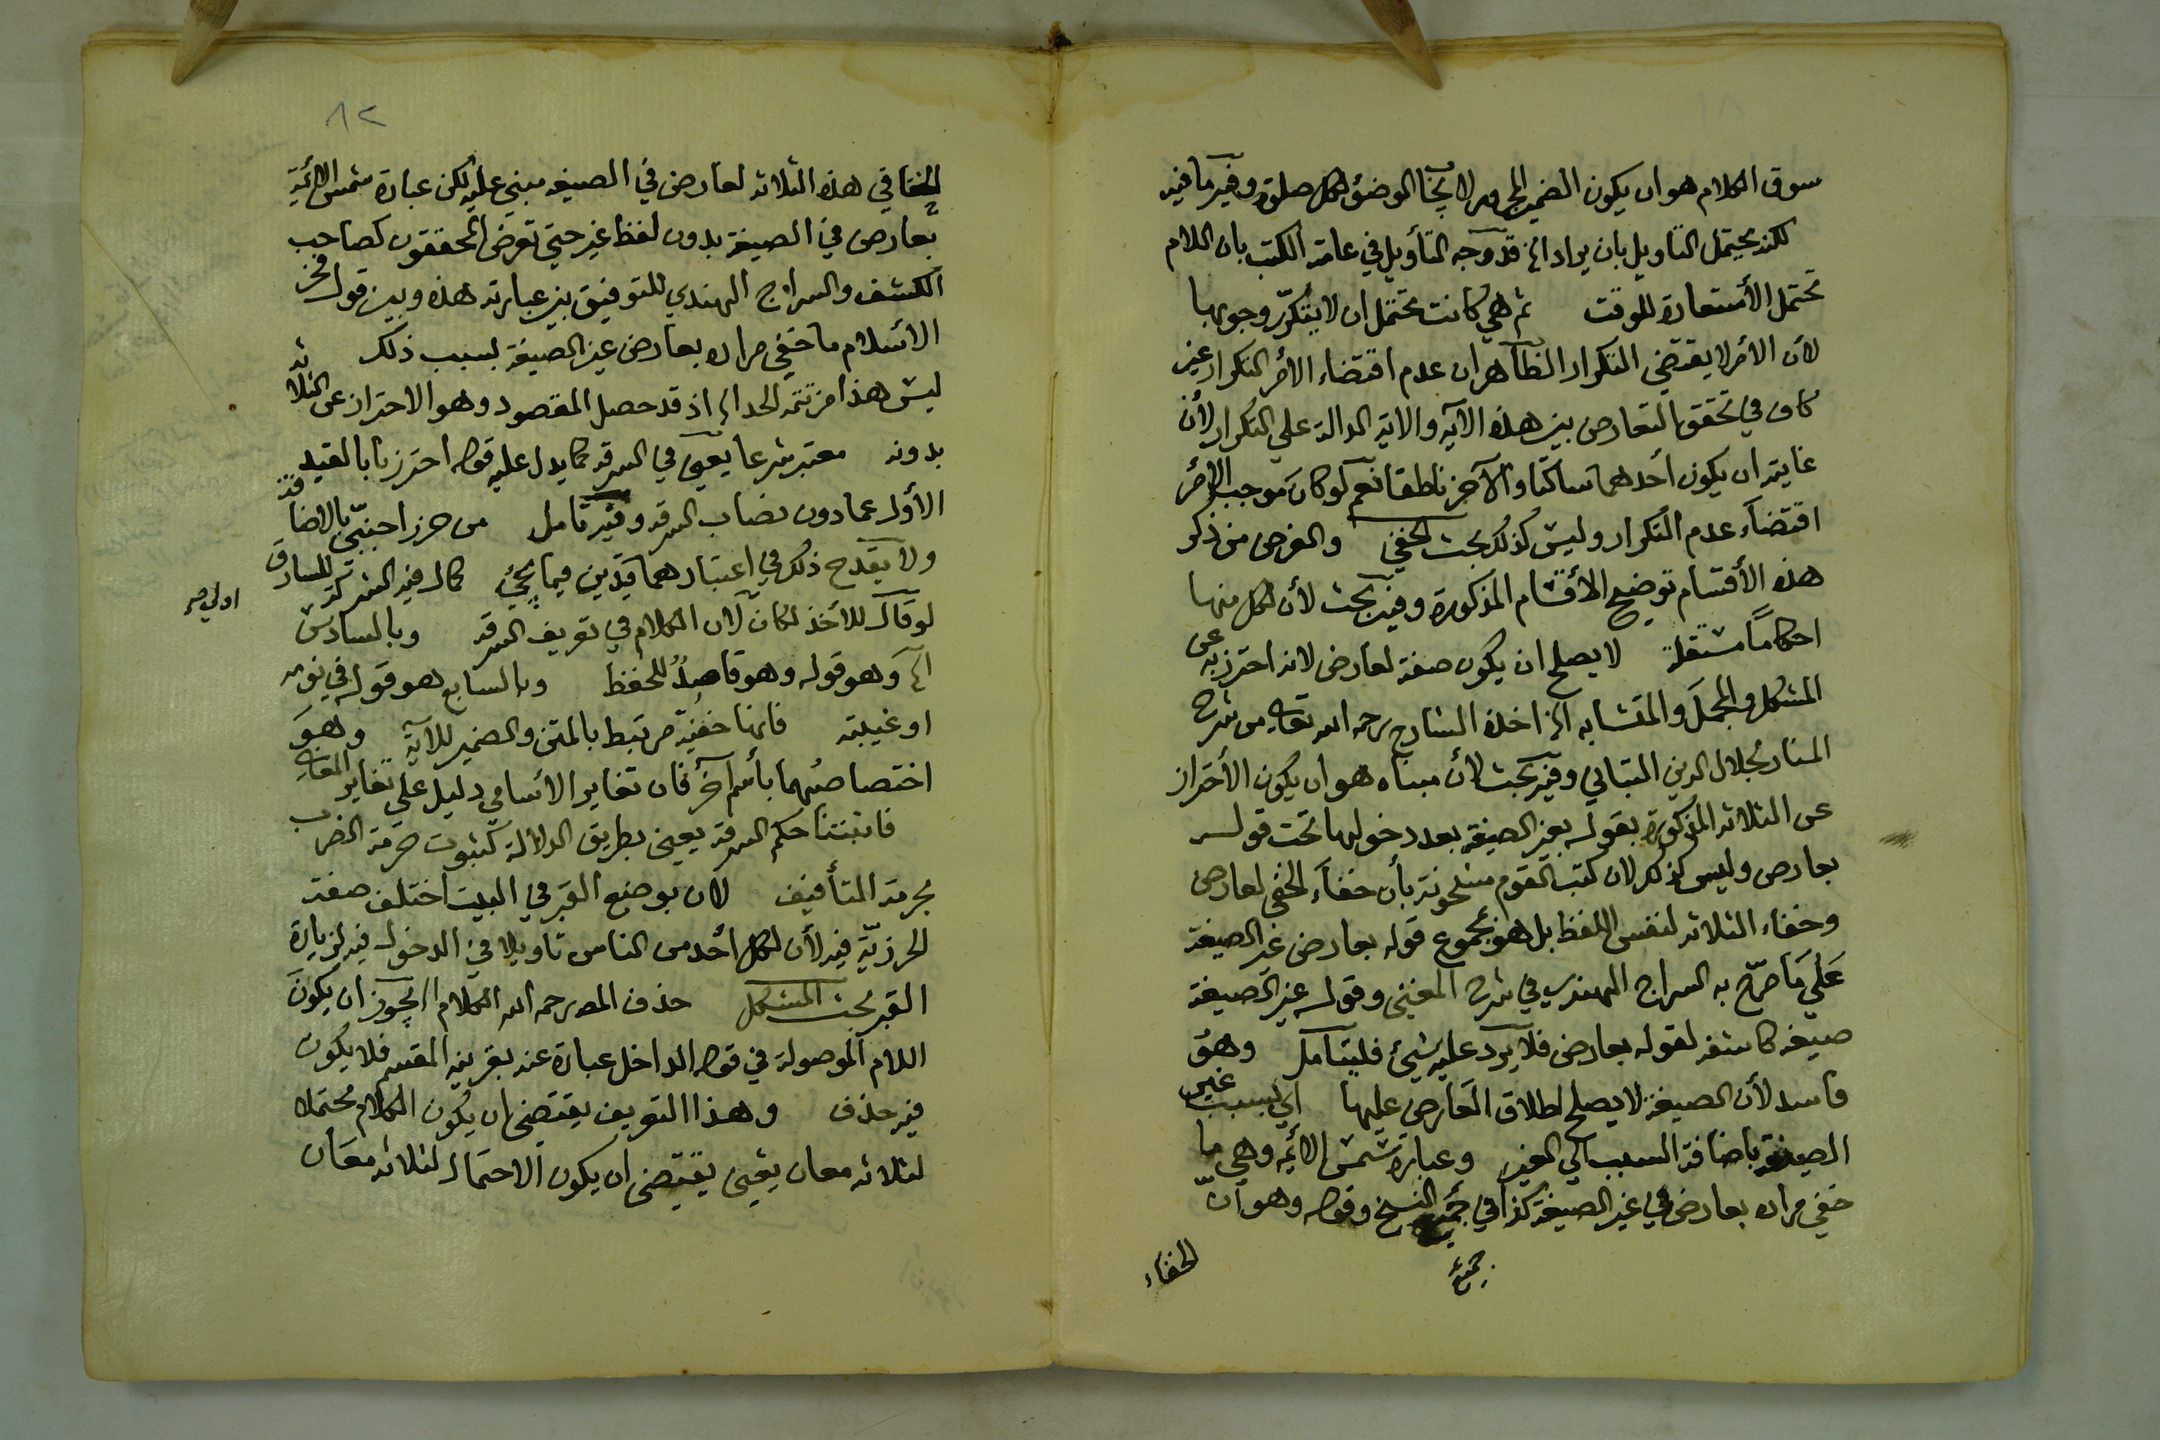 سوق الكلام هو ان يكون الضمير المجرور لا يجنا الوضوء لكل صلوة وفيه ما فيه
لكنه يحتمل التاويل بان يراد الخ قد وجه التأويل في عامة الكتب بان اللام
تحتمل الأستعارة للوقت ثم هي كانت تحتمل ان لا يتكرّر وجوبها
لأن الأمر لا يقتضي التكرار الظاهر ان عدم اقتضاء الأمر التكرار غير
كاف في تحقق التعارض بين هذه الآية والاية الدالة علي التكرار لأن
غايته ان يكون أحدهما ساكتا والآخر ناطقا نعم لو كان موجب الأمر
اقتضاء عدم التكرار وليس كذلك بحث الخفي والغرض من ذكر
هذه الأقسام توضيح الأقسام المذكورة وفيه بحث لأن لكل منها
احكاماً مستقلة لا يصلح ان يكون صفة لعارض لانه احترز به عن
المشكل والمجمل والمتشابه الخ اخذه الشارح رحمه الله تعالي من شرح
المنار لجلال الدين التباني وفيه بحث لأن مبناه هو ان يكون الأحتراز
عن الثلاثة المذكورة بقوله بغير الصيغة بعد دخولها تحت قوله
بعارض وليس كذلك لان كتب القوم مشحونة بأن خفاء الخفي لعارض
وخفاء الثلاثة لنفس اللفظ بل هو مجموع قوله بعارض غير الصيغة
علي ما صرّح به السراج الهندي في شرح المغني وقوله غير الصيغة
صيغة كاشفة لقوله بعارض فلا يرد عليه شيئ فليتأمل وهو
فاسد لأن الصيغة لا يصلح اطلاق العارض عليها اي بسبب غير
الصيغة باضافة السبب الي الغير وعبارة شمس الائمة وهي ما
خفي مراده بعارض في غير الصيغة كذا في جميع النسخ وقوله وهو ان
جميع
الخفاء
٨٢
الخفا في هذه الثلاثة لعارض في الصيغة مبني عليه لكن عبارة شمس الائمة
بعارض في الصيغة بدون لفظ غير حتي تعرض المحققون كصاحب
الكشف والسراج الهندي للتوفيق بين عبارته هذه وبين قول فخر
الاسلام ما خفي مراده بعارض غير الصيغة بسبب ذلك
ليس هذا من تتمة الحد الخ اذ قد حصل المقصود وهو الاحتراز عن الثلاثة
بدونه معتبر شرعا يعني في السرقة كما يدل عليه قوله احترزنا بالقيد
الأول عما دون نصاب السرقة وفيه تأمل من حرز اجنبيّ بالاضافة
ولا يقدح ذلك في اعتبارهما قيدين فيما يجيئ كمال فيه الشركة للسارق
اولي صح
لو قال للأخذ لكان لان الكلام في تعريف السرقة وبالسادس
الخ وهو قوله وهو قاصد للحفظ وبالسابع هو قوله في نومه
او غيبته فانها خفية مرتبط بالمتن والضمير للآية وهو
اختصاصهما بأسم آخر فان تغاير الاسامي دليل علي تغاير المعاني
فاثبتنا حكم السرقة يعني بطريق الدلالة كثبوت حرمة الضرب
بحرمة التأفيف لان بوضع القبر في البيت اختلف صفة
الحرزيّة فيه لأن لكل أحد من الناس تأويلا في الدخول فيه لزيارة
القبر بحث المشكل حذف المصر رحمه الله الكلام الخ يجوز ان يكون
اللام الموصولة في قوله الداخل عبارة عنه بقرينة المقسم فلا يكون
فيه حذف وهذا التعريف يقتضي ان يكون الكلام محتملا
لثلاثة معان يعني يقتضي ان يكون الاحتمال لثلاثة معان